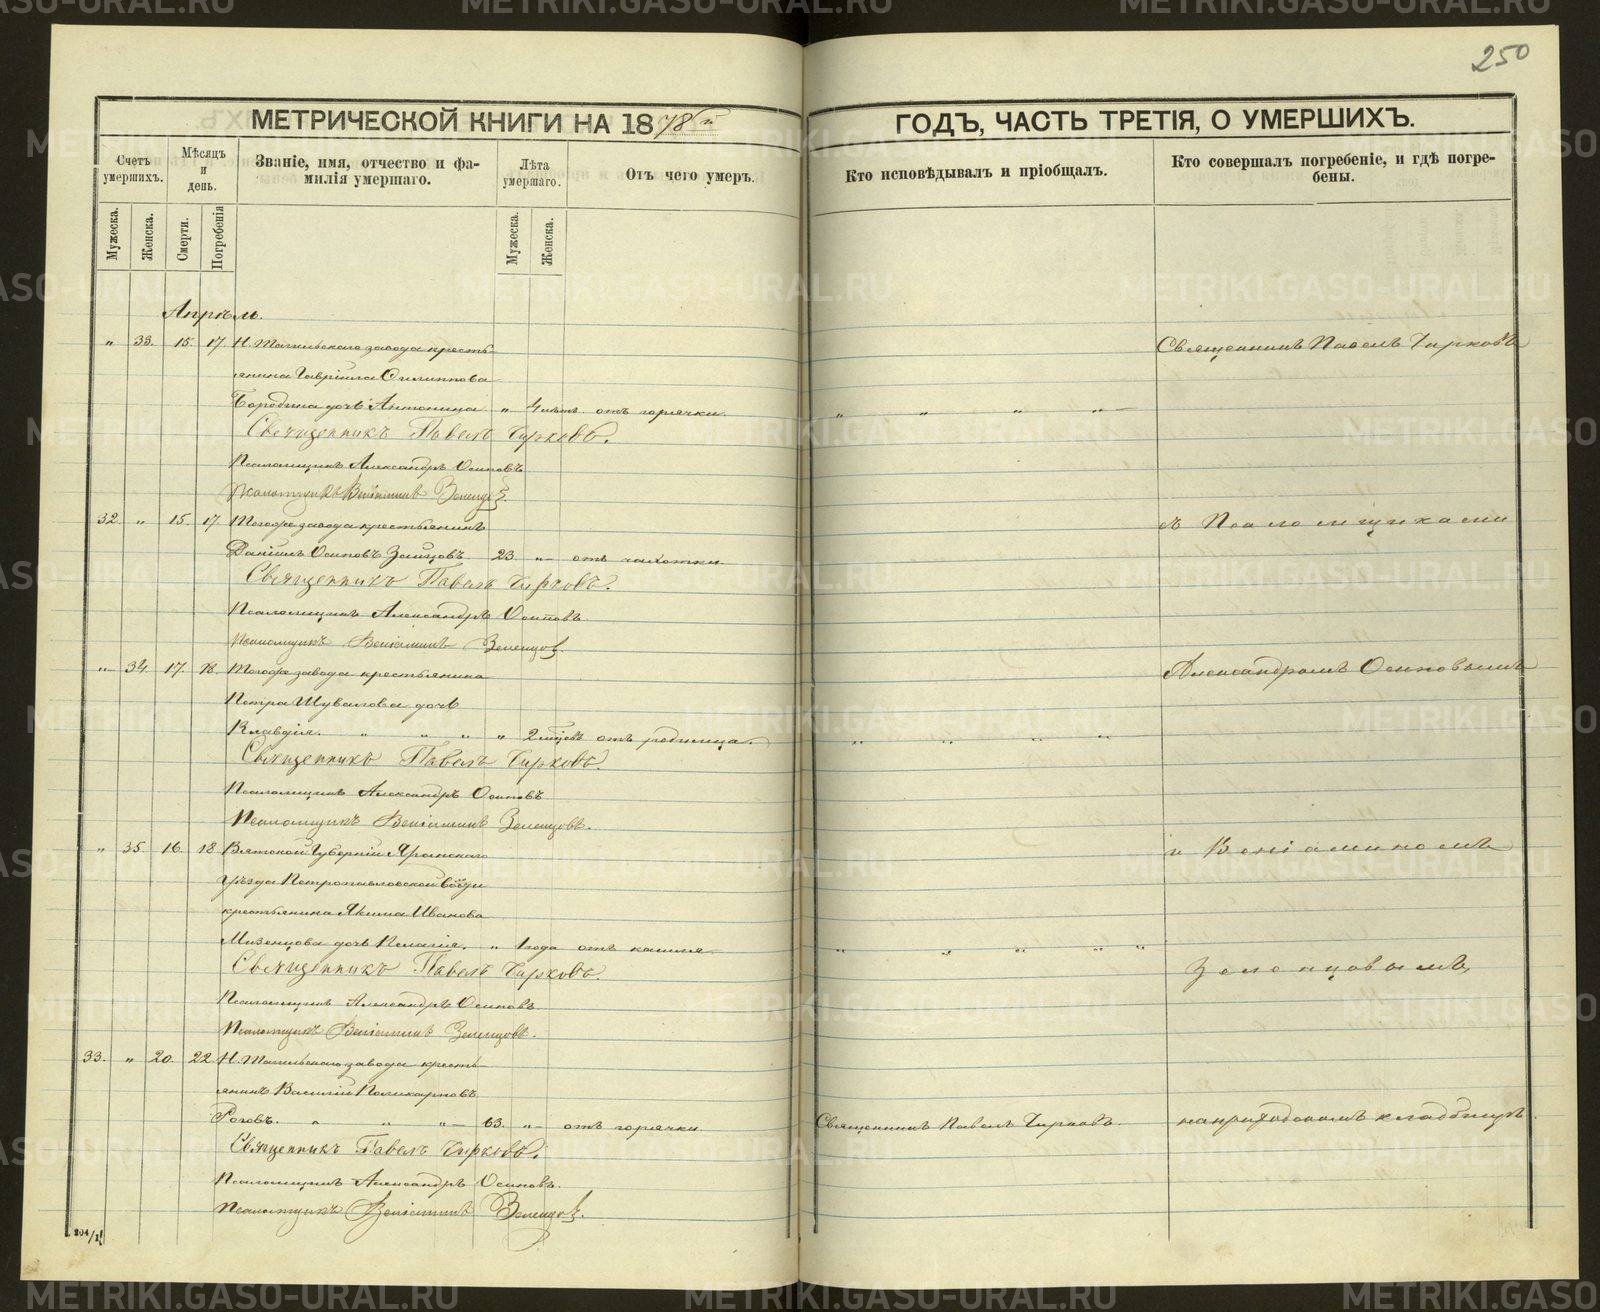 250
МЕТРИЧЕСКОЙ КНИГИ НА 1878й ГОДЪ, ЧАСТЬ ТРЕТІЯ, О УМЕРШИХЪ.
Счетъ умершихъ.
Мѣсяцъ и день.
Званіе, имя, отчество и фа-
милія умершаго.
Лѣта умершаго.
Отъ чего умеръ.
Кто исповѣдывалъ и пріобщалъ.
Кто совершалъ погребеніе, и гдѣ погре-
бены.
Мужеска.
Женска.
Смерти.
Погребенія
Мужеска.
Женска.
Апрѣль.
" 33. 15. 17. Н. Тагильскаго завода кресть- Священникъ Павелъ Чирковъ
янина Гавріила Филиппова
Бородина дочь Антонина. " 4 лѣтъ отъ горячки. " " " "
Священникъ Павелъ Чирковъ.
Псаломщикъ Александръ Осиповъ
Псаломщикъ Веніаминъ Зеленцовъ.
32. " 15. 17. Тогоже завода крестьянинъ съ Псаломщиками
Даніилъ Осиповъ Зайцовъ. 23. " отъ чахотки.
Священникъ Павелъ Чирковъ.
Псаломщикъ Александръ Осиповъ.
Псаломщикъ Веніаминъ Зеленцовъ.
" 34. 17. 18. Тогоже завода крестьянина Александромъ Осиповымъ
Петра Шувалова дочь
Клавдія. " " " " 2 мѣсцовъ отъ родимца. " " " "
Священникъ Павелъ Чирковъ.
Псаломщикъ Александръ Осиповъ
Псаломщикъ Веніаминъ Зеленцовъ.
" 35. 16. 18 Вятской Губерніи Яранскаго и Веніаминомъ
уѣзда Петропавловской
крестьянина Якима Иванова
Мизенцова дочь Пелагія. " 1 года отъ кашля. " " " " "
Священникъ Павелъ Чирковъ. Зеленцовымъ,
Псаломщикъ Александръ Осиповъ.
Псаломщикъ Веніаминъ Зеленцовъ.
33. " 20. 22. Н. Тагильскаго завода кресть-
янинъ Василій Поликарповъ
Роговъ. " " " 63. " отъ горячки. Священникъ Павелъ Чирковъ. на приходскомъ кладбищѣ.
Священникъ Павелъ Чирковъ.
Псаломщикъ Александръ Осиповъ.
Псаломщикъ Веніаминъ Зеленцовъ.
204/1
METRIKI.GASO-URAL.RU